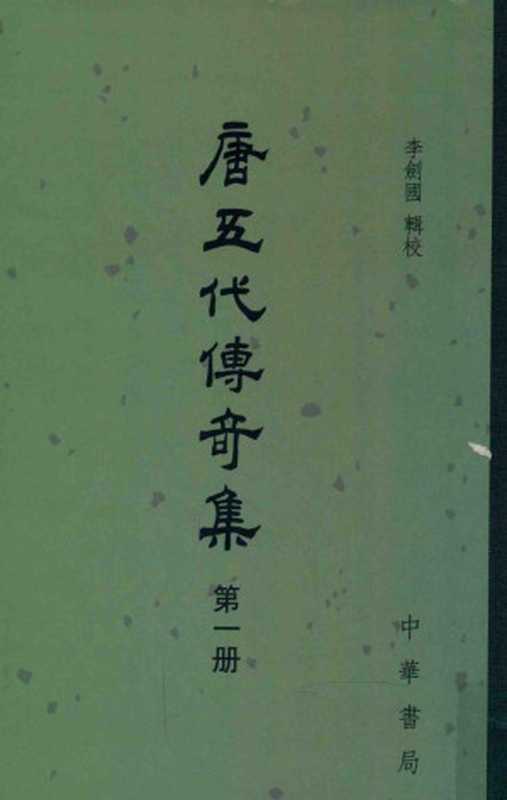 李劍國 輯校
唐五代傳奇集 第一册
中華書局